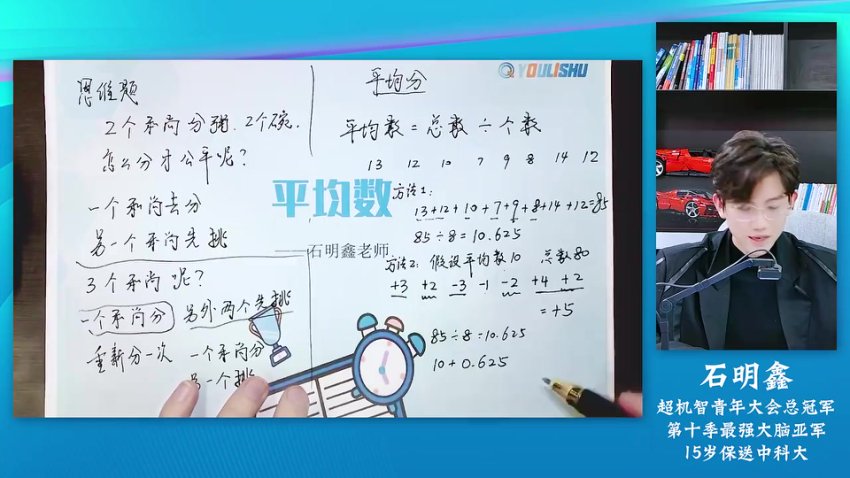 思维题
2个和尚分粥.2个碗.
怎么分才公平呢?
一个和尚去分
另一个和尚先挑
3个和尚呢?
一个和尚分 另外两个先挑
重新分一次 一个和尚分
另一个挑
平均数
——石明鑫老师
YOULISHU
平均分
平均数=总数÷个数
13 12 10 7 9 8 14 12
方法1:
13+12+10+7+9+8+14+12=85
85÷8=10.625
方法2: 假设平均数10 总数80
+3 +2 -3 -1 -2 +4 +2
=+5
85÷8=10.625
10+0.625
石明鑫
超机智青年大会总冠军
第十季最强大脑亚军
15岁保送中科大